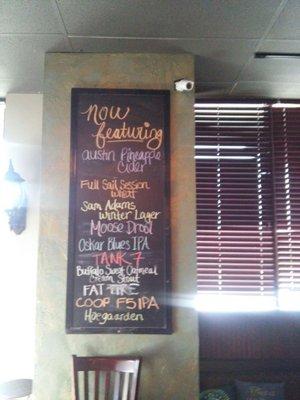 now
featuring
austin Pineapple
Cider
Full Sail Session
Wheat
Sam Adams
Winter Lager
Moose Drool
Oskar Blues IPA
TANK 7
Buffalo Sweet Oatmeal
Cream Stout
FAT TIRE
COOP F5 IPA
Hoegaarden